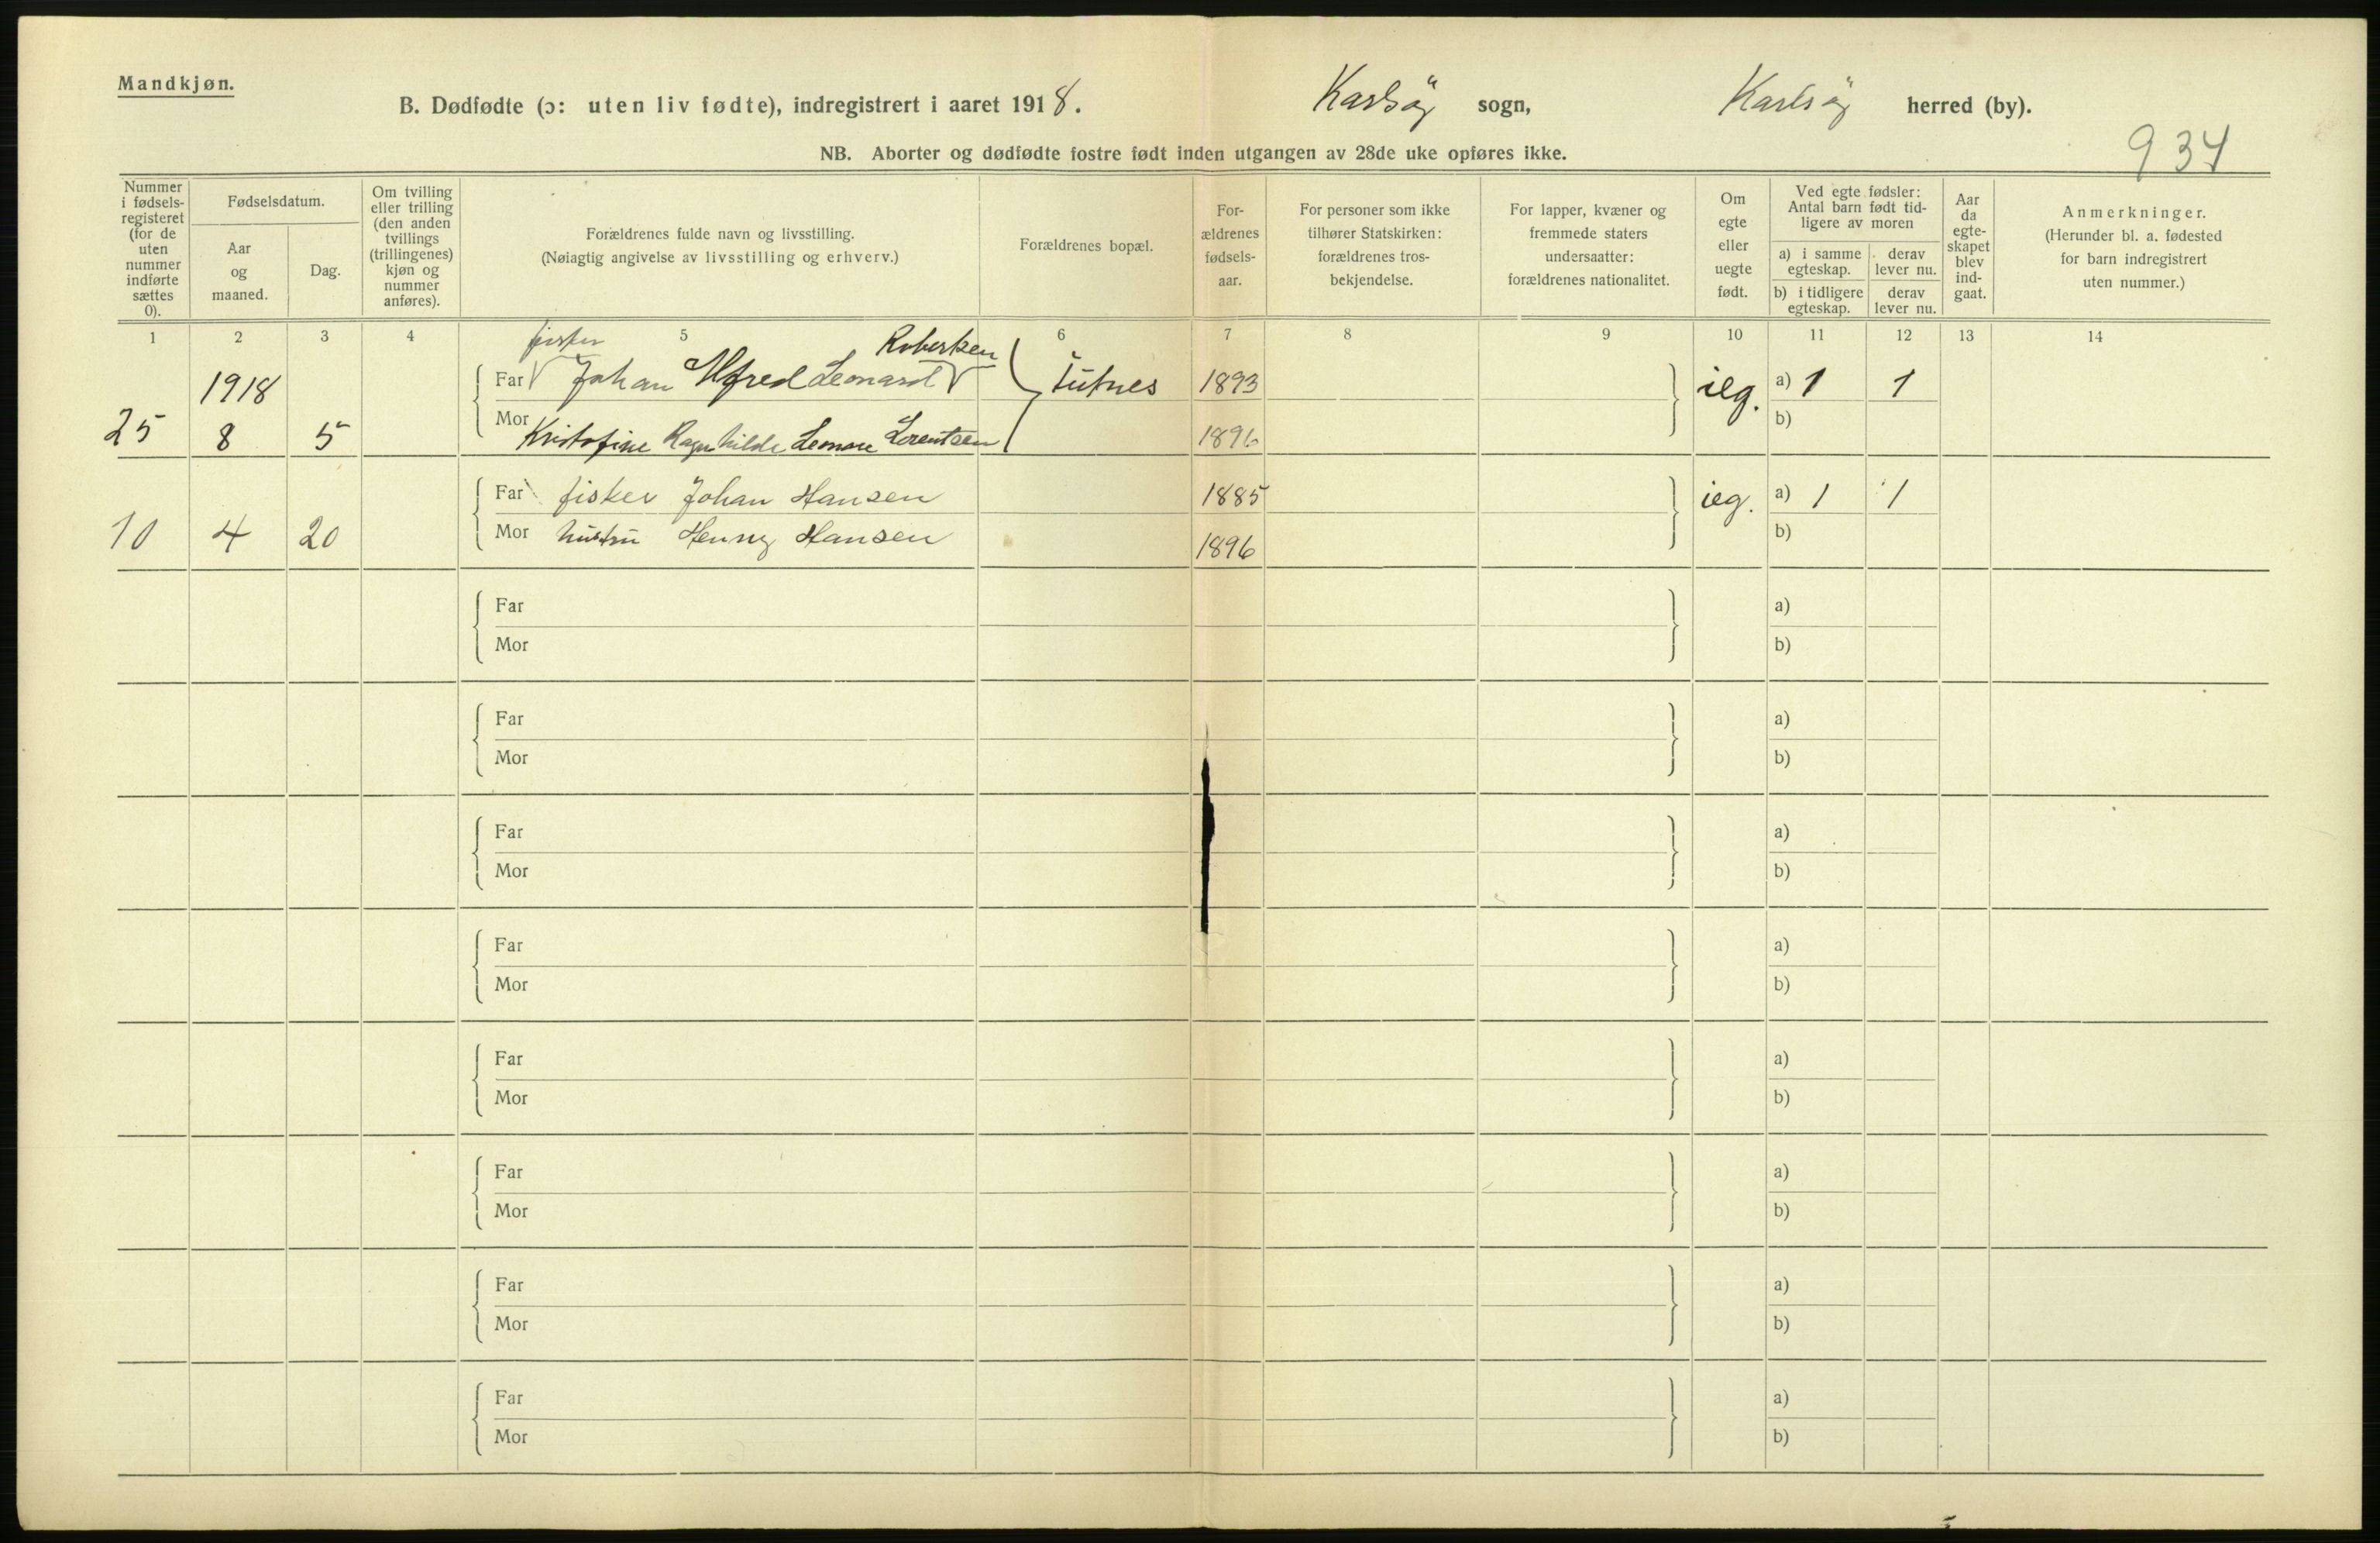 Mandkjøn.
B. Dødfødte (ɔ: uten liv fødte), indregistrert i aaret 1918.
Karlsöy sogn,
Karlsöy herred (by).
934
NB. Aborter og dødfødte fostre født inden utgangen av 28de uke opføres ikke.
Nummer
i fødsels-
registeret
(for de
uten
nummer
indførte
sættes
0).
Fødselsdatum.
Aar
og
maaned.
Dag.
Om tvilling
eller trilling
(den anden
tvillings
(trillingenes)
kjøn og
nummer
anføres).
Forældrenes fulde navn og livsstilling.
(Nøiagtig angivelse av livsstilling og erhverv.)
Forældrenes bopæl.
For-
ældrenes
fødsels-
aar.
For personer som ikke
tilhører Statskirken:
forældrenes tros-
bekjendelse.
For lapper, kvæner og
fremmede staters
undersaatter:
forældrenes nationalitet.
Om
egte
eller
uegte
født.
Ved egte fødsler:
Antal barn født tid-
ligere av moren
a) i samme
egteskap.
derav
lever nu.
b) i tidligere
egteskap.
derav
lever nu.
Aar
da
egte-
skapet
blev
ind-
gaat.
Anmerkninger.
(Herunder bl. a. fødested
for barn indregistrert
uten nummer.)
1 2 3 4 5 6 7 8 9 10 11 12 13 14
fisker Robersken
1918 Far Johan Alfred Leonard 1893 a) 1 1
25 8 5 Mor Kristofine Ragnhilde Leonore Lorentsen 1896 b)
Far fisker Johan Hansen 1885 a) 1 1
10 4 20 Mor hustru Henny Hansen 1896 b)
Far a)
Mor b)
Far a)
Mor b)
Far a)
Mor b)
Far a)
Mor b)
Far a)
Mor b)
Far a)
Mor b)
Far a)
Mor b)
Far a)
Mor b)